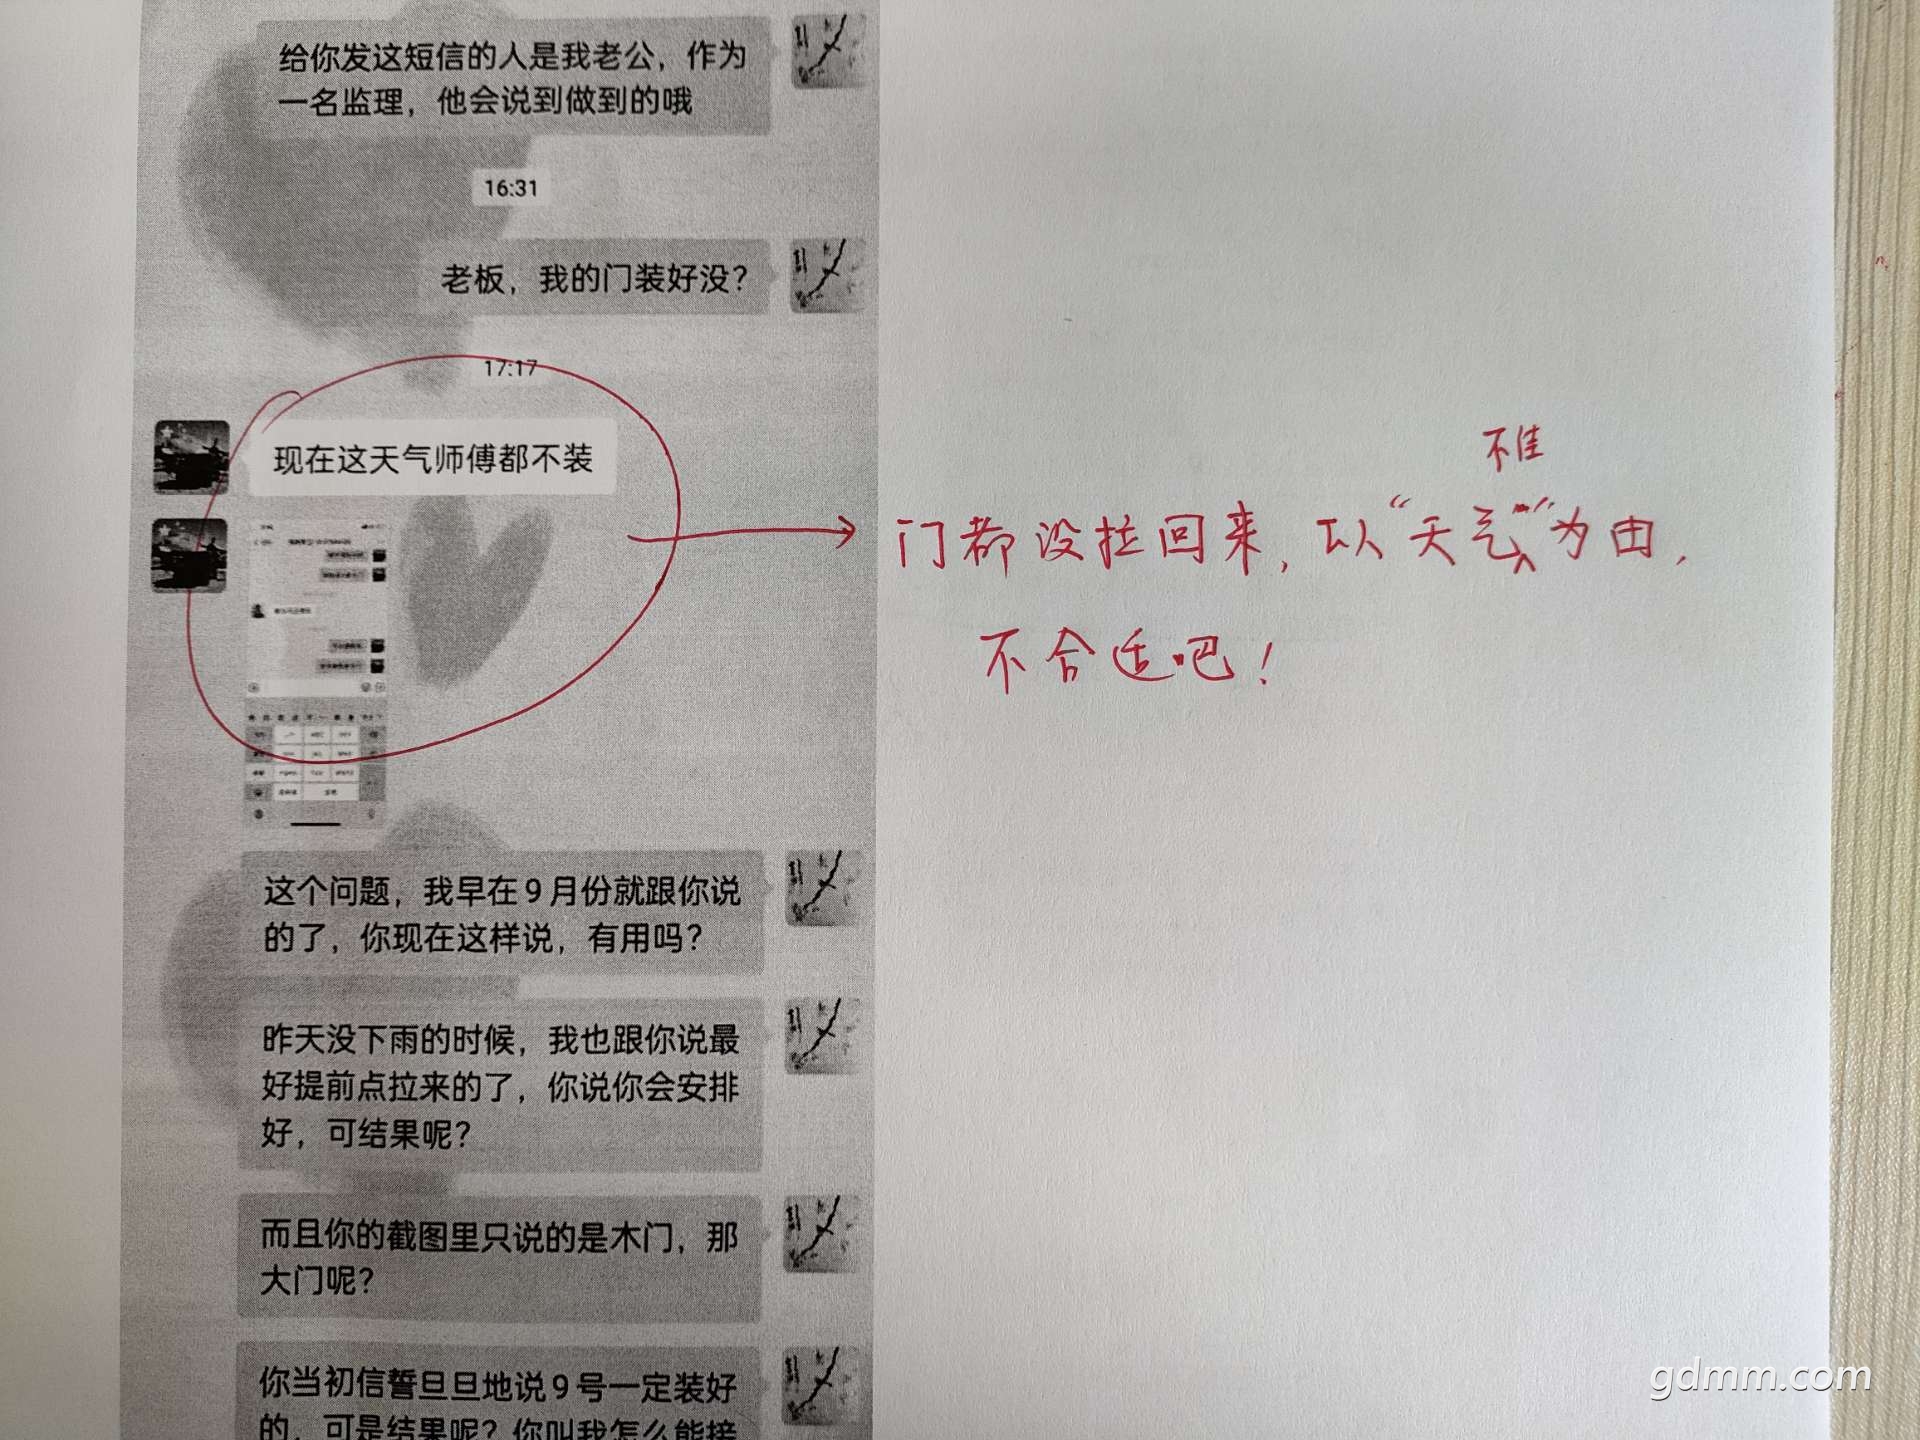 给你发这短信的人是我老公，作为
一名监理，他会说到做到的哦
16:31
老板，我的门装好没？
17:17
现在这天气师傅都不装
不佳
门都没拉回来，以“天气”为由，
不合适吧！
这个问题，我早在9月份就跟你说
的了，你现在这样说，有用吗？
昨天没下雨的时候，我也跟你说最
好提前点拉来的了，你说你会安排
好，可结果呢？
而且你的截图里只说的是木门，那
大门呢？
你当初信誓旦旦地说9号一定装好
的，可是结果呢？你叫我怎么能接
gdmm.com